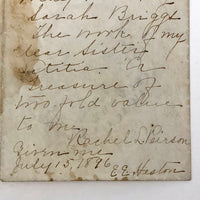 Sarah Briggs
The work of my
dear sister
Letitia. A
treasure of
two fold value
to me
Rachel Pierson
Given me
July 15, 1896
E E Heston